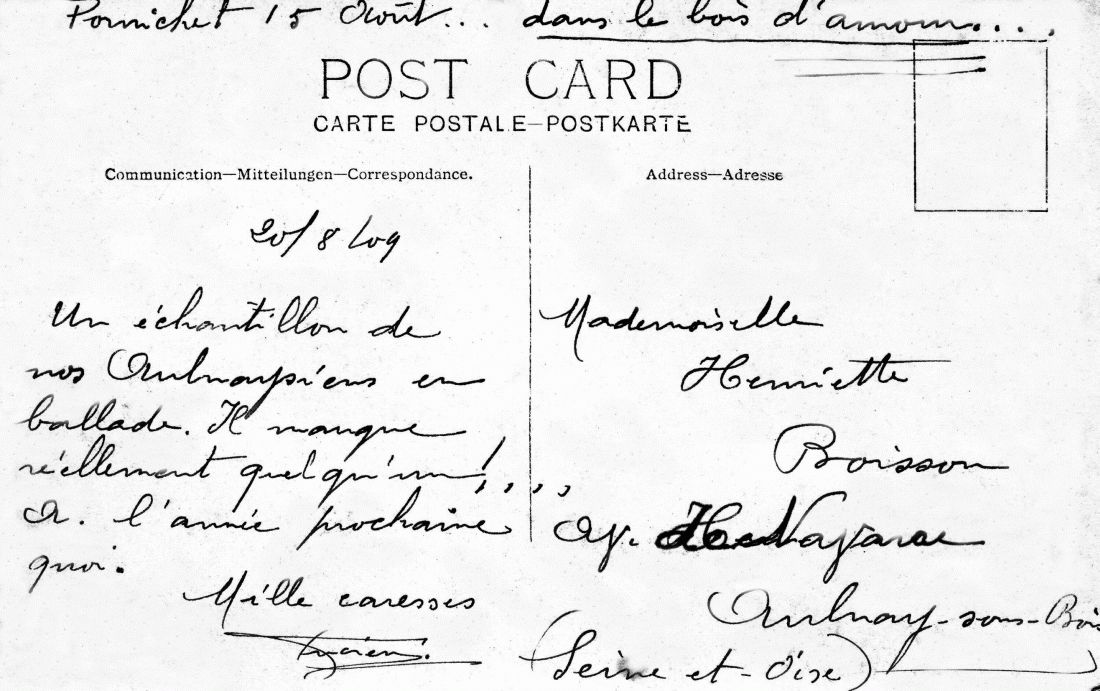 Pornichet 15 Août... dans le bois d'amour....
POST CARD
CARTE POSTALE—POSTKARTE
Communication—Mitteilungen—Correspondance.
Address—Adresse
20/8/09
Un échantillon de
nos Aulnaysiens en
ballade. Il manque
réellement quelqu'un!,,,,
A. l'année prochaine
quoi.
Mille caresses
Lucien.
Mademoiselle
Henriette
Boisson
Av. de Navarre
Aulnay-sous-Bois
(Seine et-Oise)